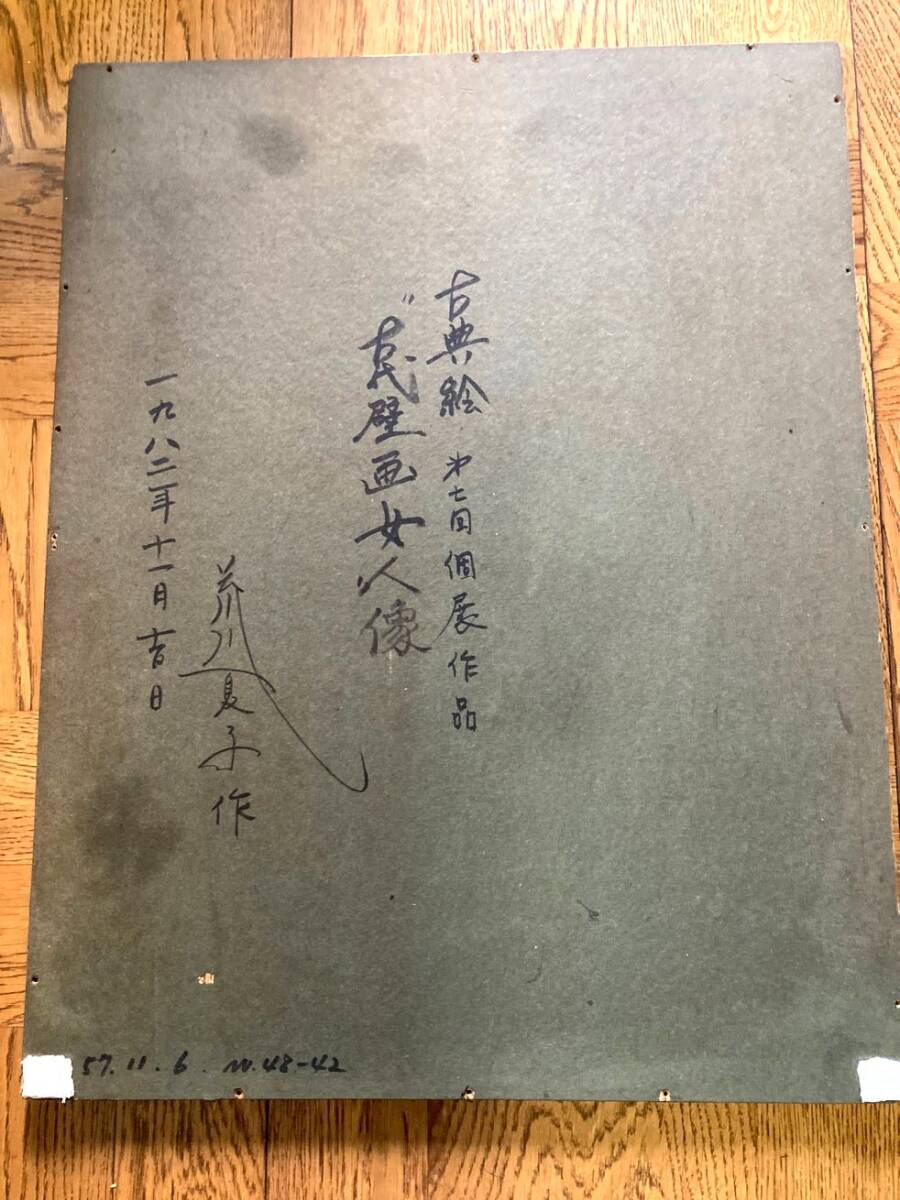 古典絵 第七回個展作品
"古代壁画女人像"
荒川夏子作
一九八二年十一月吉日
57.11.6. W.48-42